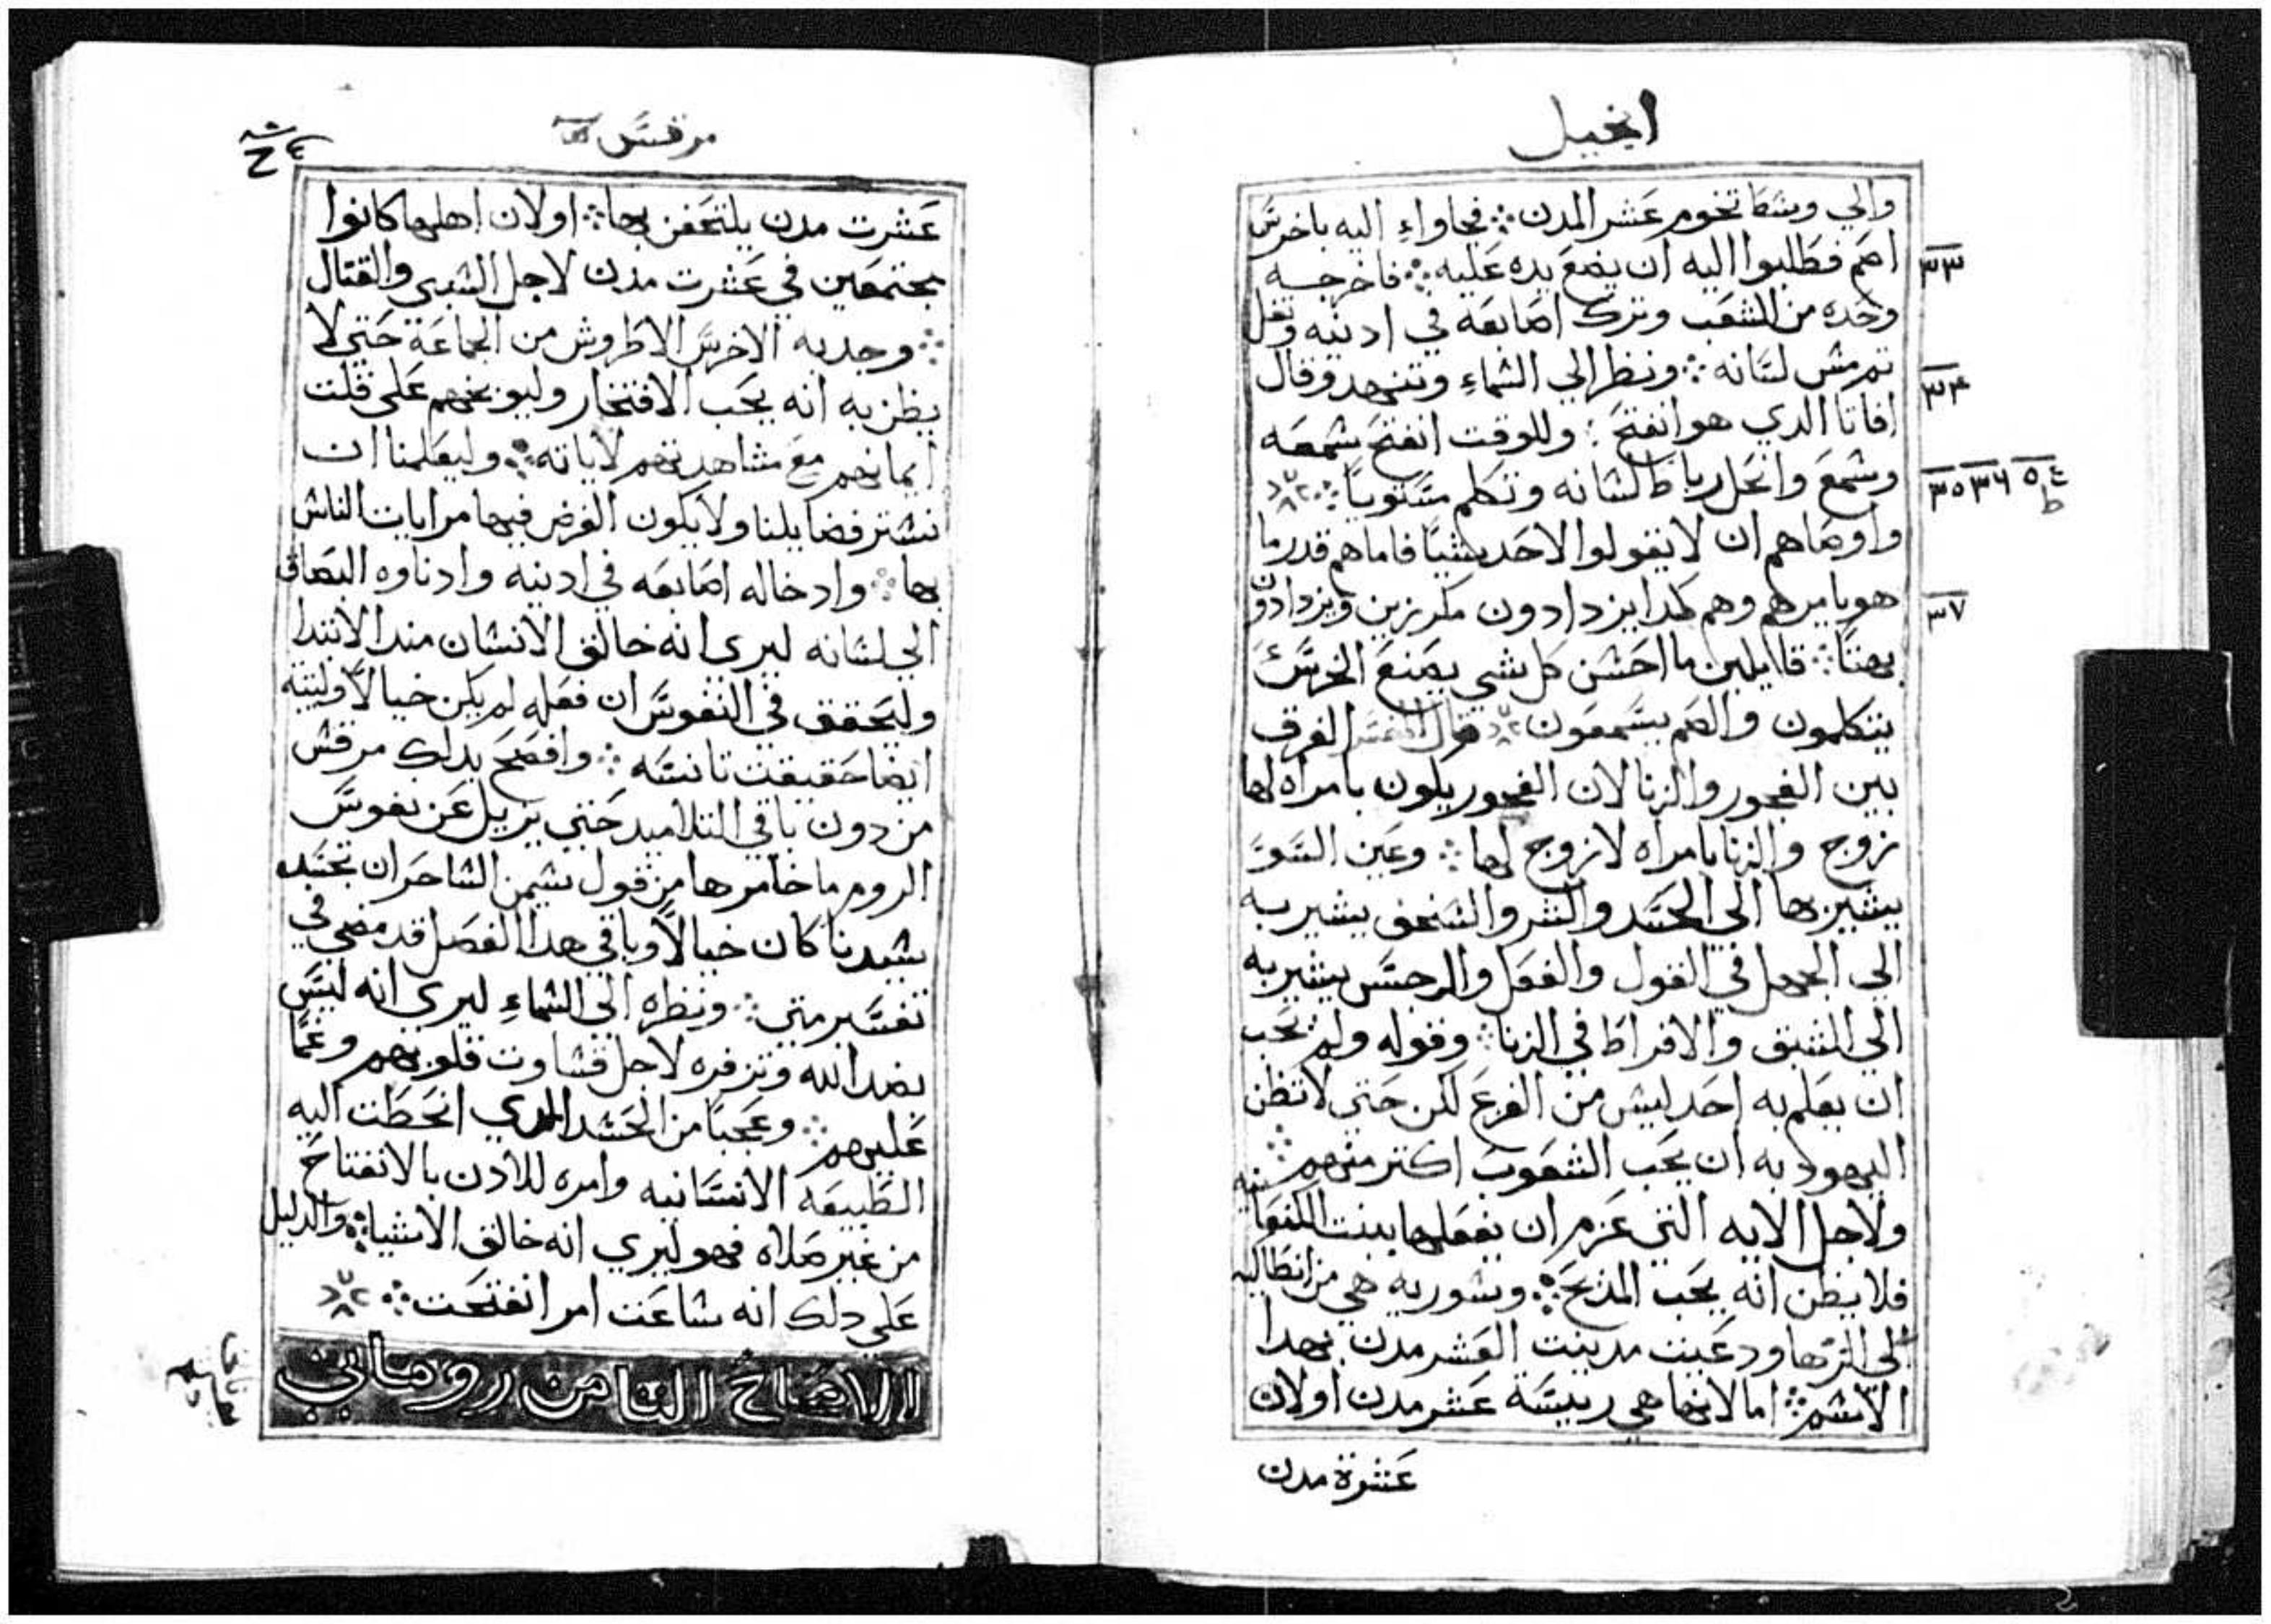 انجيل
والي وسط تخوم عشر المدن ۞ فجاواءِ اليه باخرس
٣٣
اصم فطلبوا اليه ان يضع يده عليه ۞ فاخرجه
وحده من الشعب وترك اصابعه في ادنيه وتفل
٣٤
تم مس لسانه ۞ ونظر الي السماءِ وتنهد وقال
افاتا الدي هو انفتح ؛ وللوقت انفتح سمعه
٣٥ ٣٦
وسمع وانحل رباط لسانه وتكلم مستوياً ۞
واوصاهم ان لا يقولوا لاحد شياً فاما هم قدر ما
٣٧
هو يامرهم وهم كدا يزدادون مكرزين ويزدادون
بهتاً ۞ قاايلين ما احسن كل شي يصنع الخرس
يتكلمون والصم يسمعون قال المفسر الفرق
بين الفجور والزنا لان الفجور يكون بامراه لها
زوج والزنا بامراه لا زوج لها ۞ وعين السو
يشير بها الي الحسد والشر والسخف يشير به
الي الجهل في القول والفعل والرجس يشير به
الي الشبق والافراط في الزنا ۞ وقوله ولم يحب
ان يعلم به احد ليس من الفزع لكن حتي لا تظن
اليهود به ان يحب الشعوب اكتر منهم ۞
ولاجل الايه التي عزم ان يفعلها ببنت الكنعانيه
فلا يظن انه يحب المدح ۞ وسوريه هي من انطاكيه
الي الرها ودعيت مدينت العشر مدن بهدا
الاسم ۞ اما لانها هي رييسة عشر مدن اولان
عشرة مدن
مرقس
عشرت مدن يلتحفن بها ۞ اولان اهلها كانوا
مجتمعين في عشرت مدن لاجل السبي والقتال
۞ وجدبه الاخرس الاطروش من الجماعة حتي لا
يظن به انه يحب الافتخار وليوبخهم علي قلت
ايمانهم مع مشاهدتهم لاياته ۞ وليعلمنا ان
نستر فضايلنا ولا يكون الغرض فيها مرايات الناس
بها ۞ وادخاله اصابعه في ادنيه وادناوه البصاق
الي لسانه ليري انه خالق الانسان مند الابتدا
وليحقق في النفوس ان فعله لم يكن خيالاً وليتبه
ايضا حقيقت تانسه ۞ وافصح بدلك مرقس
من دون باقي التلاميد حتي يزيل عن نفوس
الروم ما خامرها من قول سيمن الساحر ان تجسد
سيدنا كان خيالاً وباقي هدا الفصل قد مضي في
تفسير متي ۞ ونظره الي السماءِ ليري انه ليس
بضد الله وتزفره لاجل قساوت قلوبهم وغماً
عليهم ۞ وعجباً من الحسد الدي انحطت اليه
الطبيعه الانسانيه وامره للادن بالانفتاح
من غير صلاه فهو ليري انه خالق الاشيا ۞ والدليل
علي دلك انه ساعت امر انفتحت ۞
الاصحاح التامن روماني